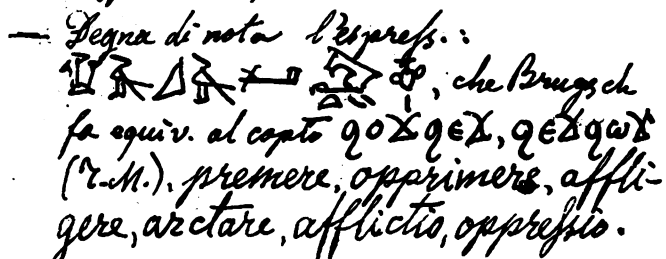 — Degna di nota l'espress.:
, che Brugsch
fa equiv. al copto ϥⲟϫϥⲉϫ, ϥⲉϫϥⲱϫ
(T.M.), premere, opprimere, affli-
gere, arctare, afflictio, oppressio.